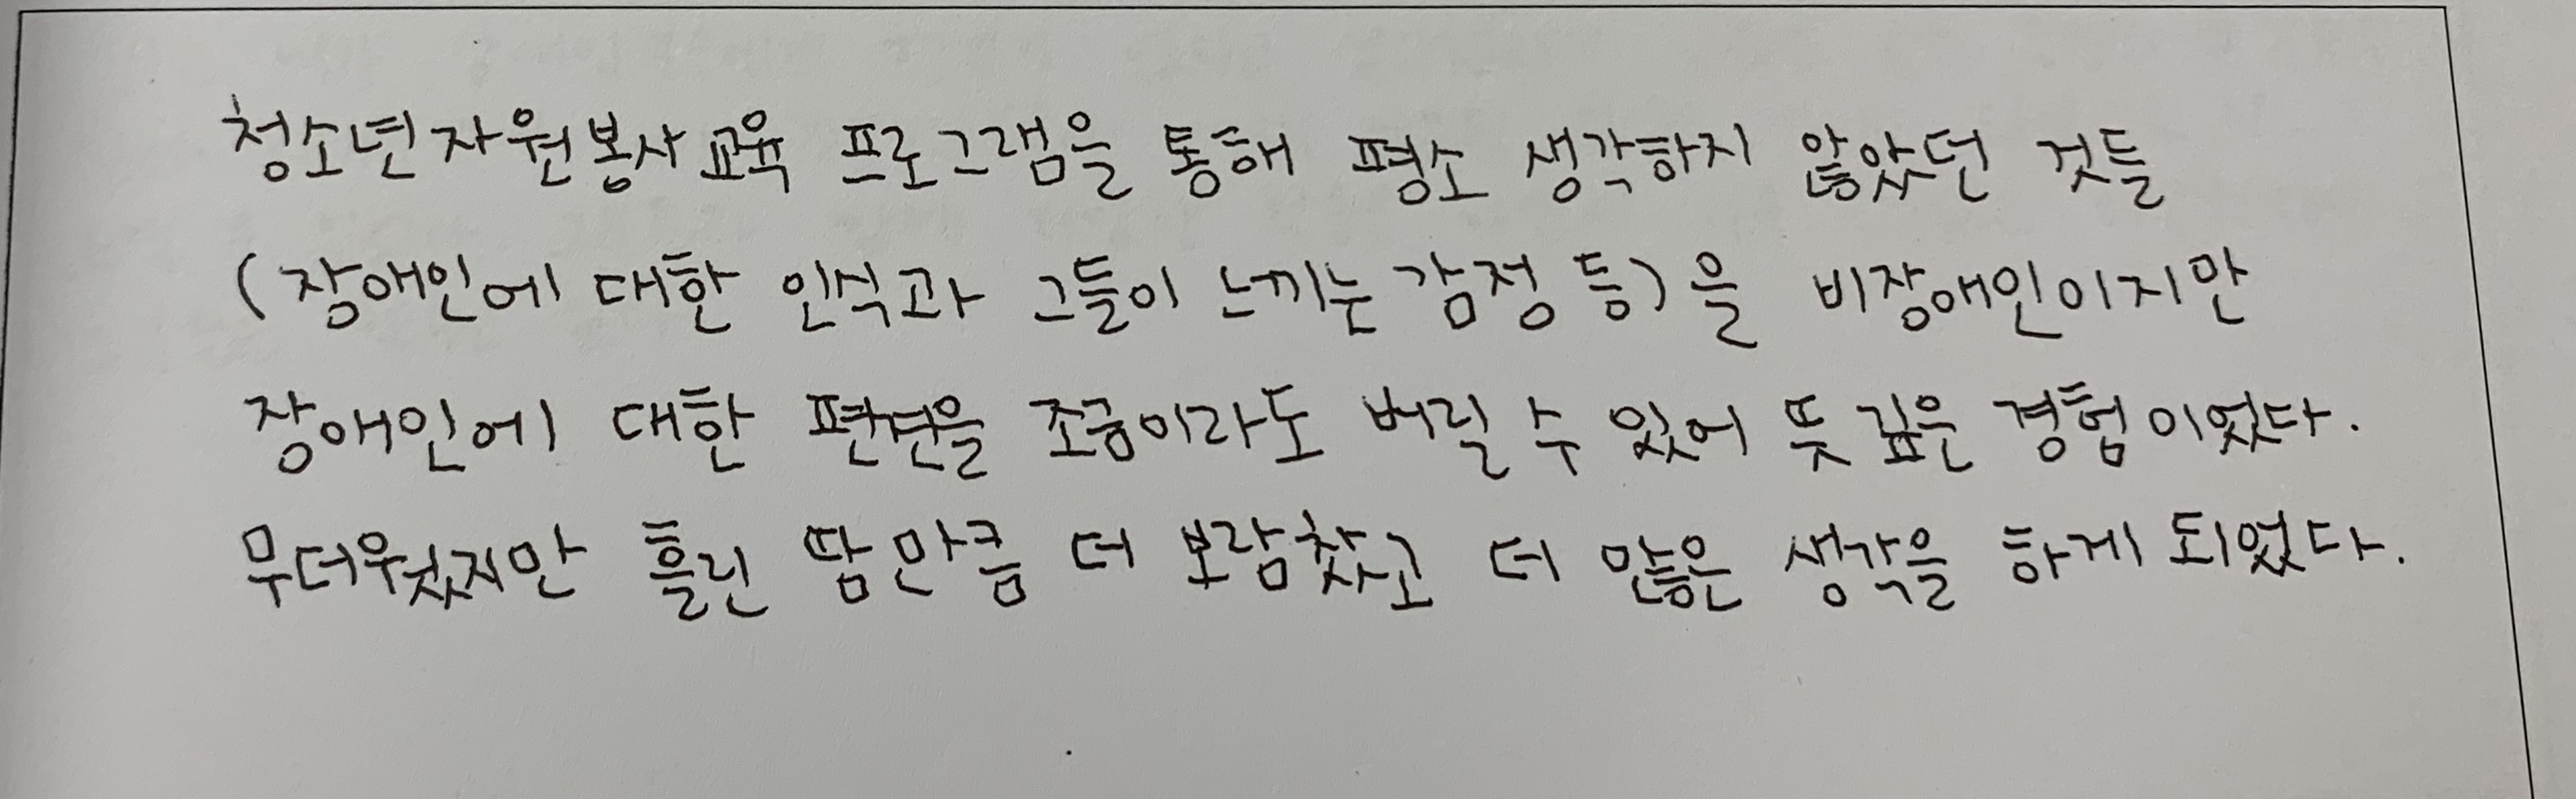 청소년자원봉사교육 프로그램을 통해 평소 생각하지 않았던 것들
(장애인에 대한 인식과 그들이 느끼는 감정 등)을 비장애인이지만
장애인에 대한 편견을 조금이라도 버릴 수 있어 뜻 깊은 경험이었다.
무더웠지만 흘린 땀만큼 더 보람찼고 더 많은 생각을 하게 되었다.